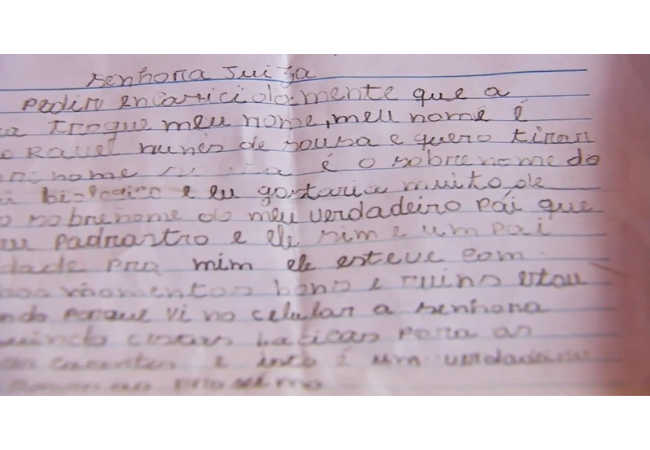 senhora Juiza
Pedir encaricidamente que a
troque meu nome, meu nome é
Rauel nunes de sousa e quero tirar
nome é o sobrenome do
biologico e eu gostaria muito de
o sobrenome do meu verdadeiro pai que
padrastro e ele sim e um pai
dade pra mim ele esteve com
momentos bons e ruins estou
ndo porque vi no celular a senhora
cestas basicas para as
carentes e isto é um verdadeiro